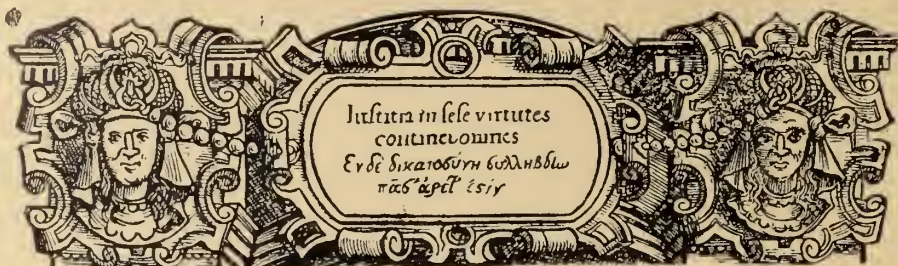 Iustitia in sese virtutes
continet omnes
Εν δὲ δικαιοσύνῃ συλλήβδίω
πᾶσ' ἀρετ' ἐστίν